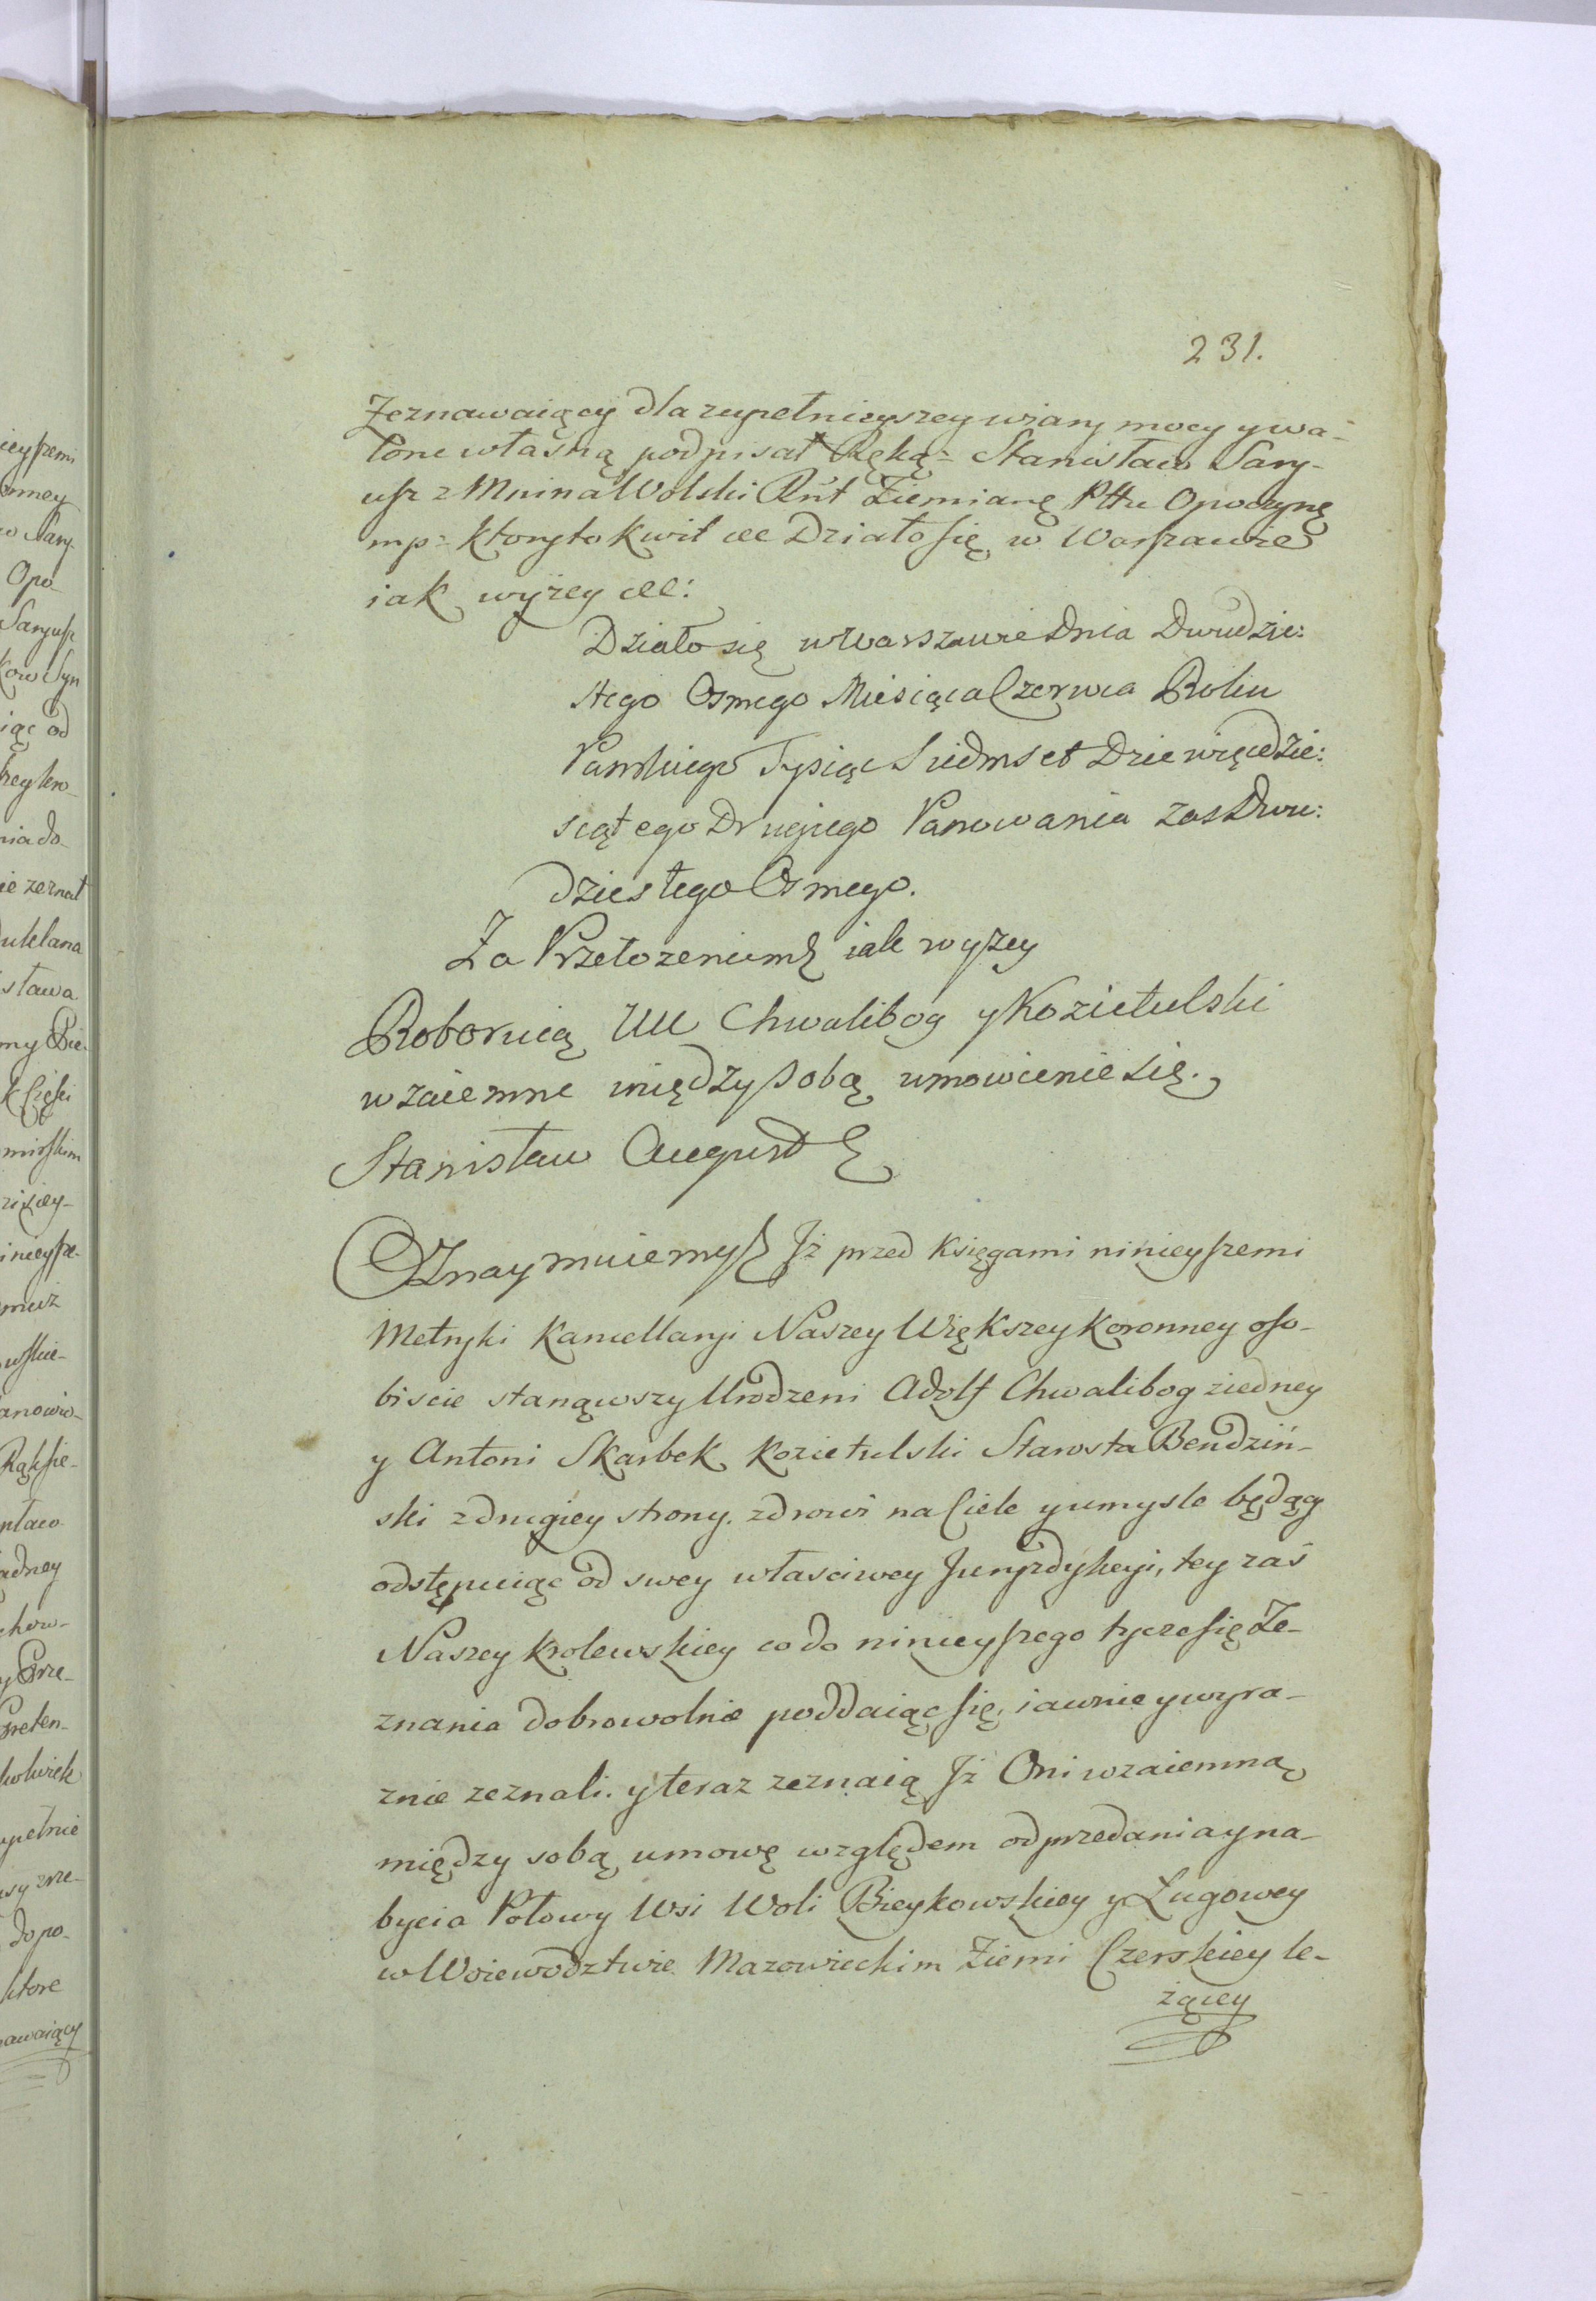 231.
Zeznawaiący dla zupełnieyszey wiary mocy y wa-
loru własną podpisał Ręką= Stanisław Sary-
usz z Mnina Wolski Rnt Ziemianę Pttu Opoczynę
mp= ktoryto kwit &c Działo się w Warszawie
iak wyżey &c:
Działo się w Warszawie dnia Dwudzie:
stego Osmego Miesiąca Czerwca Roku
Panskiego Tysiąc Siedmset Dziewięcdzie:
siątego Drugiego Panowania zas Dwu:
dziestego Osmego.
Za Przełozeniem iak wyszey
Roboruią UU Chwalibog y Kozietulski
wzaiemne między sobą umowienie się.
Stanisław August
Oznaymuiemy Jż przed Księgami ninieyszemi
Metryki Kancellaryi Naszey Większey Koronney oso-
biscie stanąwszy Urodzeni Adolf Chwalibog ziedney
y Antoni Skarbek Kozietulski Starosta Bendziń-
ski zdrugiey strony. zdrowi na Ciele y umysle będąc
odstępuiąc od swey własciwey Juryzdykcyi, tey zaś
Naszey Krolewskiey co do ninieyszego tycze się Ze-
znania dobrowolnie poddaiąc się, iawnie y wyra-
znie zeznali. y teraz zeznaią Jż Oni wzaiemną
między sobą umowę względem odprzedania y na-
bycia Połowy Wsi Woli Bieykowskiey y Ługowey
w Woiewodztwie Mazowieckim Ziemi Czerskiey le-
żącey